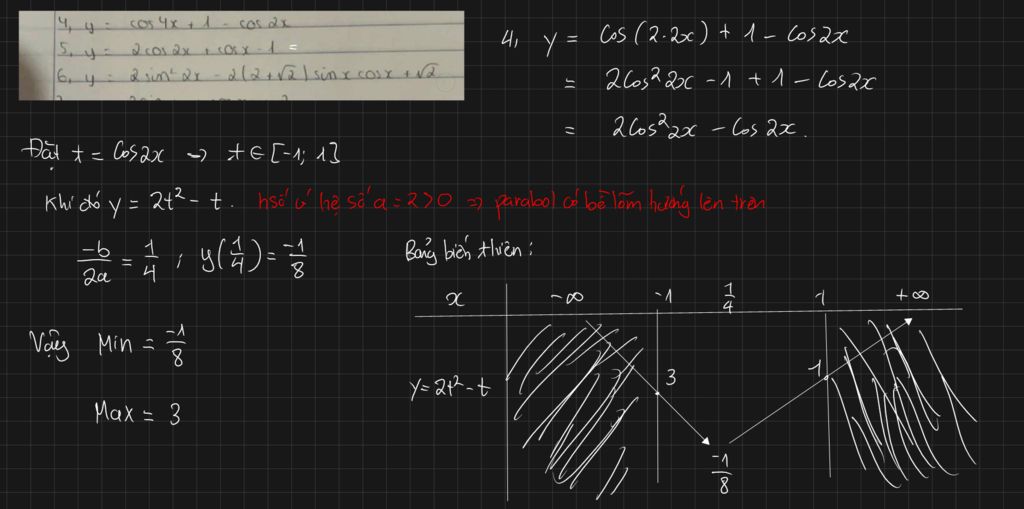 4, y = cos 4x + 1 - cos 2x
5, y = 2cos 2x + cos x - 1 =
6, y = 2 sin² 2x - 2(2+√2) sin x cos x + √2
4, y = Cos(2.2x) + 1 - Cos2x
= 2Cos²2x - 1 + 1 - Cos2x
= 2Cos²2x - Cos 2x.
Đặt t = Cos2x → t ∈ [-1; 1]
Khi đó y = 2t² - t. hsố có hệ số a = 2 > 0 ⇒ parabol có bề lõm hướng lên trên
-b/2a = 1/4 ; y(1/4) = -1/8
Bảng biến thiên:
x -∞ -1 1/4 1 +∞
y = 2t² - t 3 -1/8 1
Vậy Min = -1/8
Max = 3